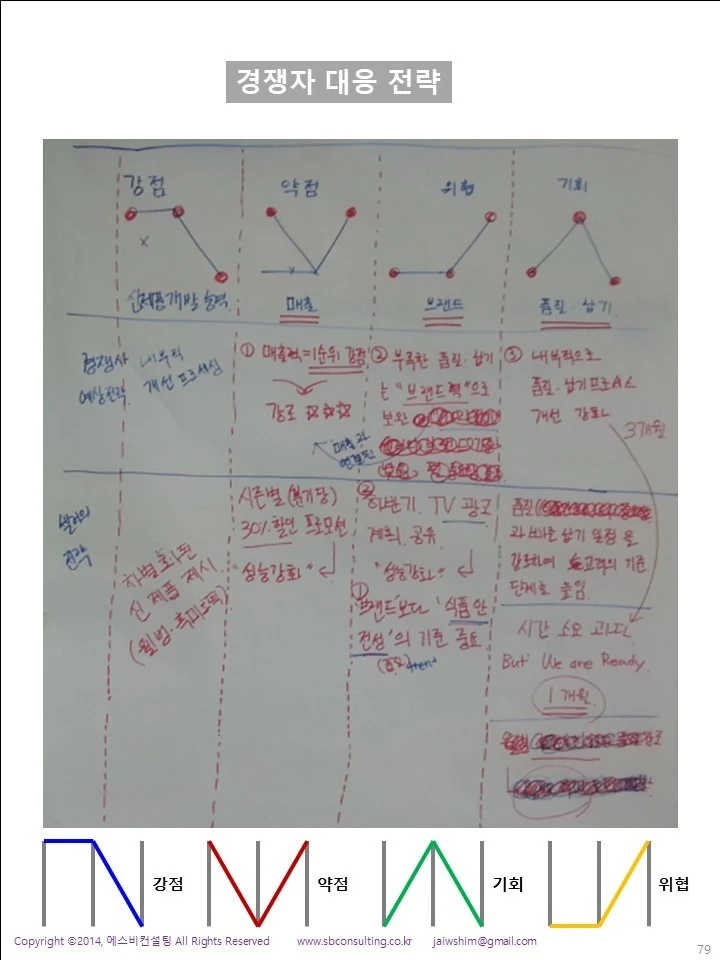 경쟁자 대응 전략
강점
약점
위협
기회
신제품개발능력
매출
브랜드
품질·납기
경쟁사
예상전략
내부적
개선 프로세싱
① 매출력=1순위 강점
강조 ☆☆☆
매출과
연결된
② 부족한 품질·납기
는 "브랜드력"으로
보완
③ 내부적으로
품질·납기프로세스
개선 강화
3개월
전략
차별화된
신 제품 제시
시즌별 (분기당)
30% 할인 프로모션
"성능강화"
② 하반기. TV 광고
계획. 공유
"성능강화"
① 브랜드보다 '식품안
전성'의 기준 중요
품질
과 빠른 납기 일정 을
강조하여 고객의 기준
단계로 높임
시간 소요 과다
But We are Ready.
1개월
강점
약점
기회
위협
Copyright ©2014, 에스비컨설팅 All Rights Reserved www.sbconsulting.co.kr jaiwshim@gmail.com
79